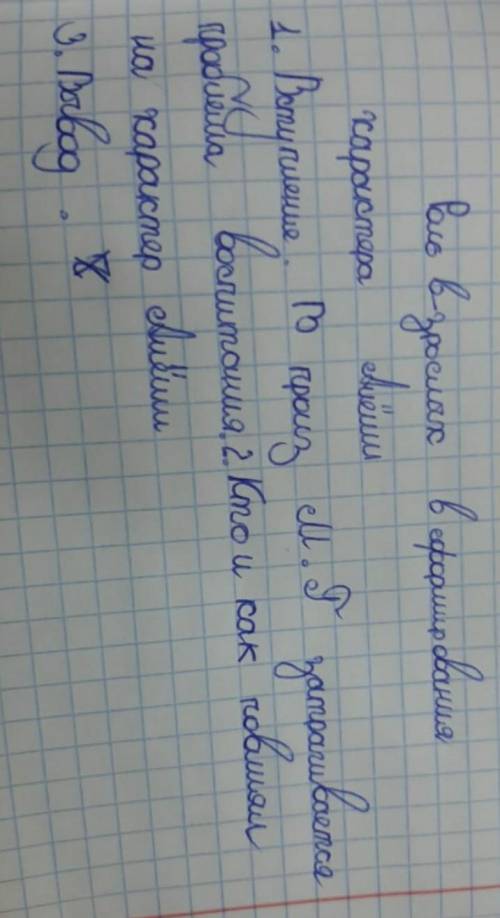 Роль взрослых в сформирования
характера Алёши
1. Вступление. В произ М.Г затрагивается
проблема воспитания. 2. Кто и как повлиял
на характер Алёши
3. Вывод.